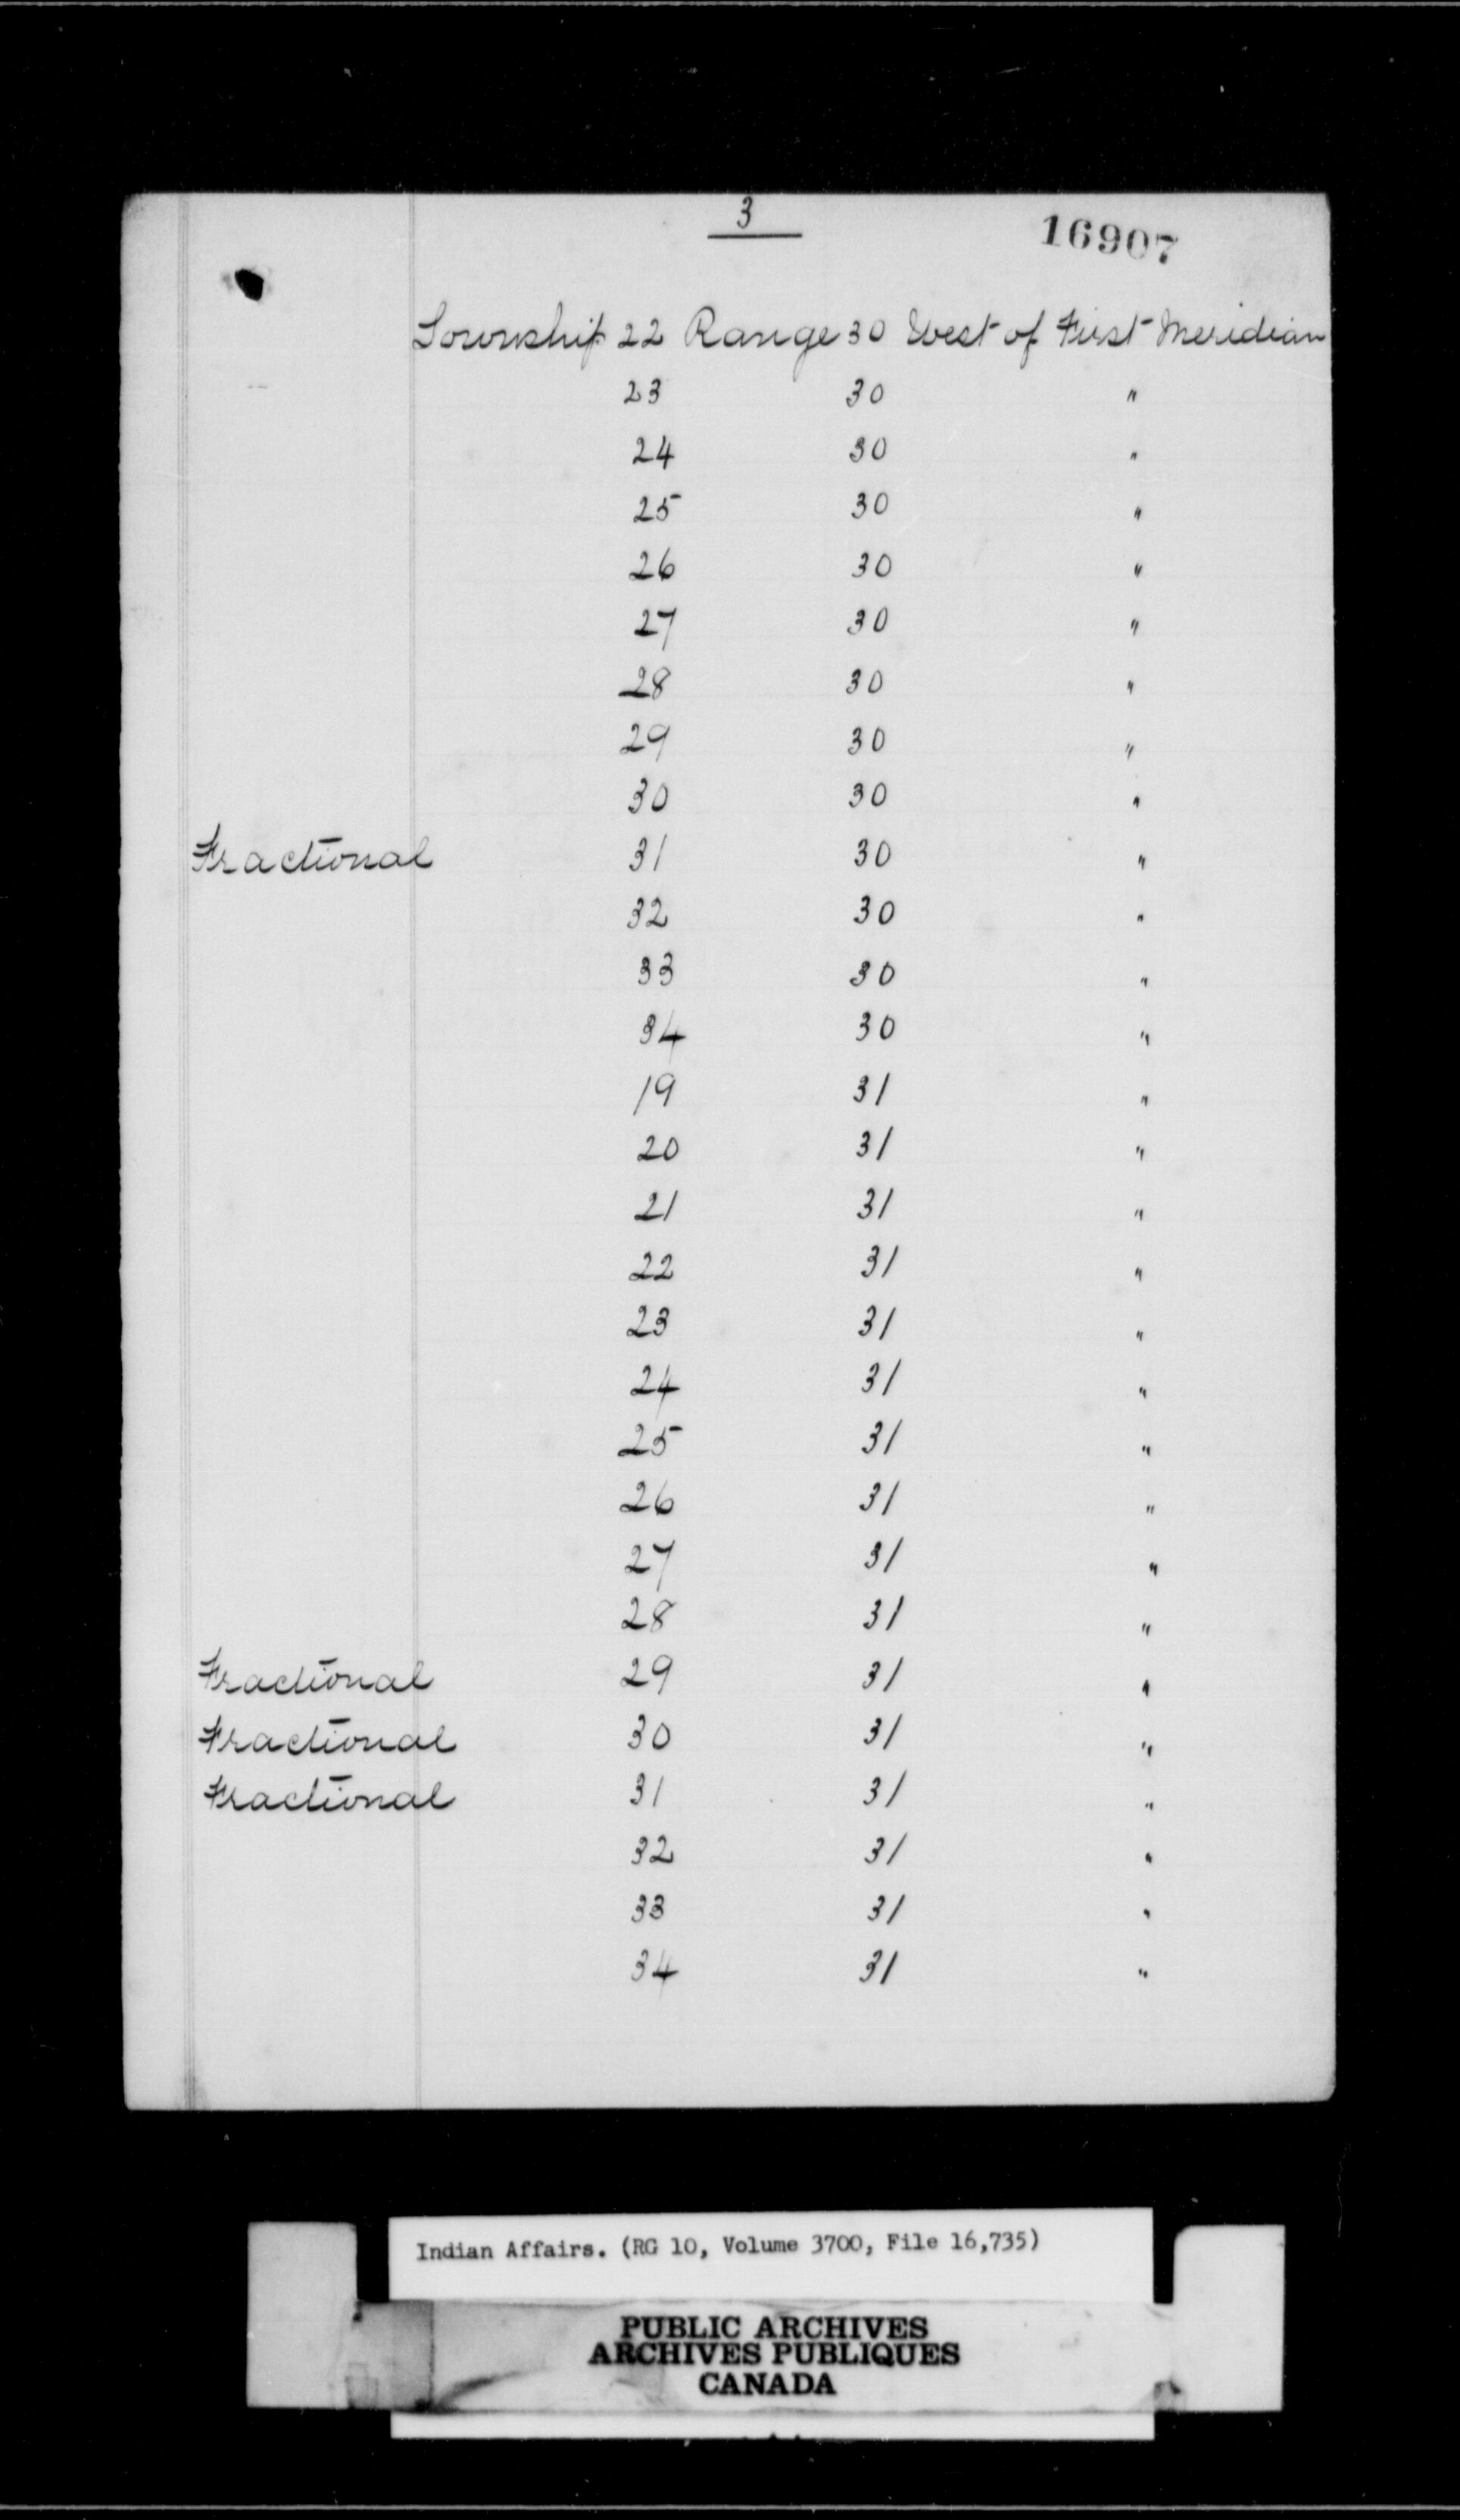 3
16907
Township 22 Range 30 West of First Meridian
23 30 "
24 30 "
25 30 "
26 30 "
27 30 "
28 30 "
29 30 "
30 30 "
Fractional 31 30 "
32 30 "
33 30 "
34 30 "
19 31 "
20 31 "
21 31 "
22 31 "
23 31 "
24 31 "
25 31 "
26 31 "
27 31 "
28 31 "
Fractional 29 31 "
Fractional 30 31 "
Fractional 31 31 "
32 31 "
33 31 "
34 31 "
Indian Affairs. (RG 10, Volume 3700, File 16,735)
PUBLIC ARCHIVES
ARCHIVES PUBLIQUES
CANADA